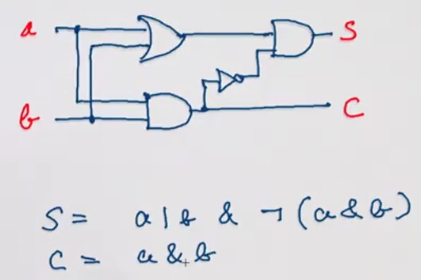 a S
b C
S = a | b & ¬ (a & b)
C = a & b